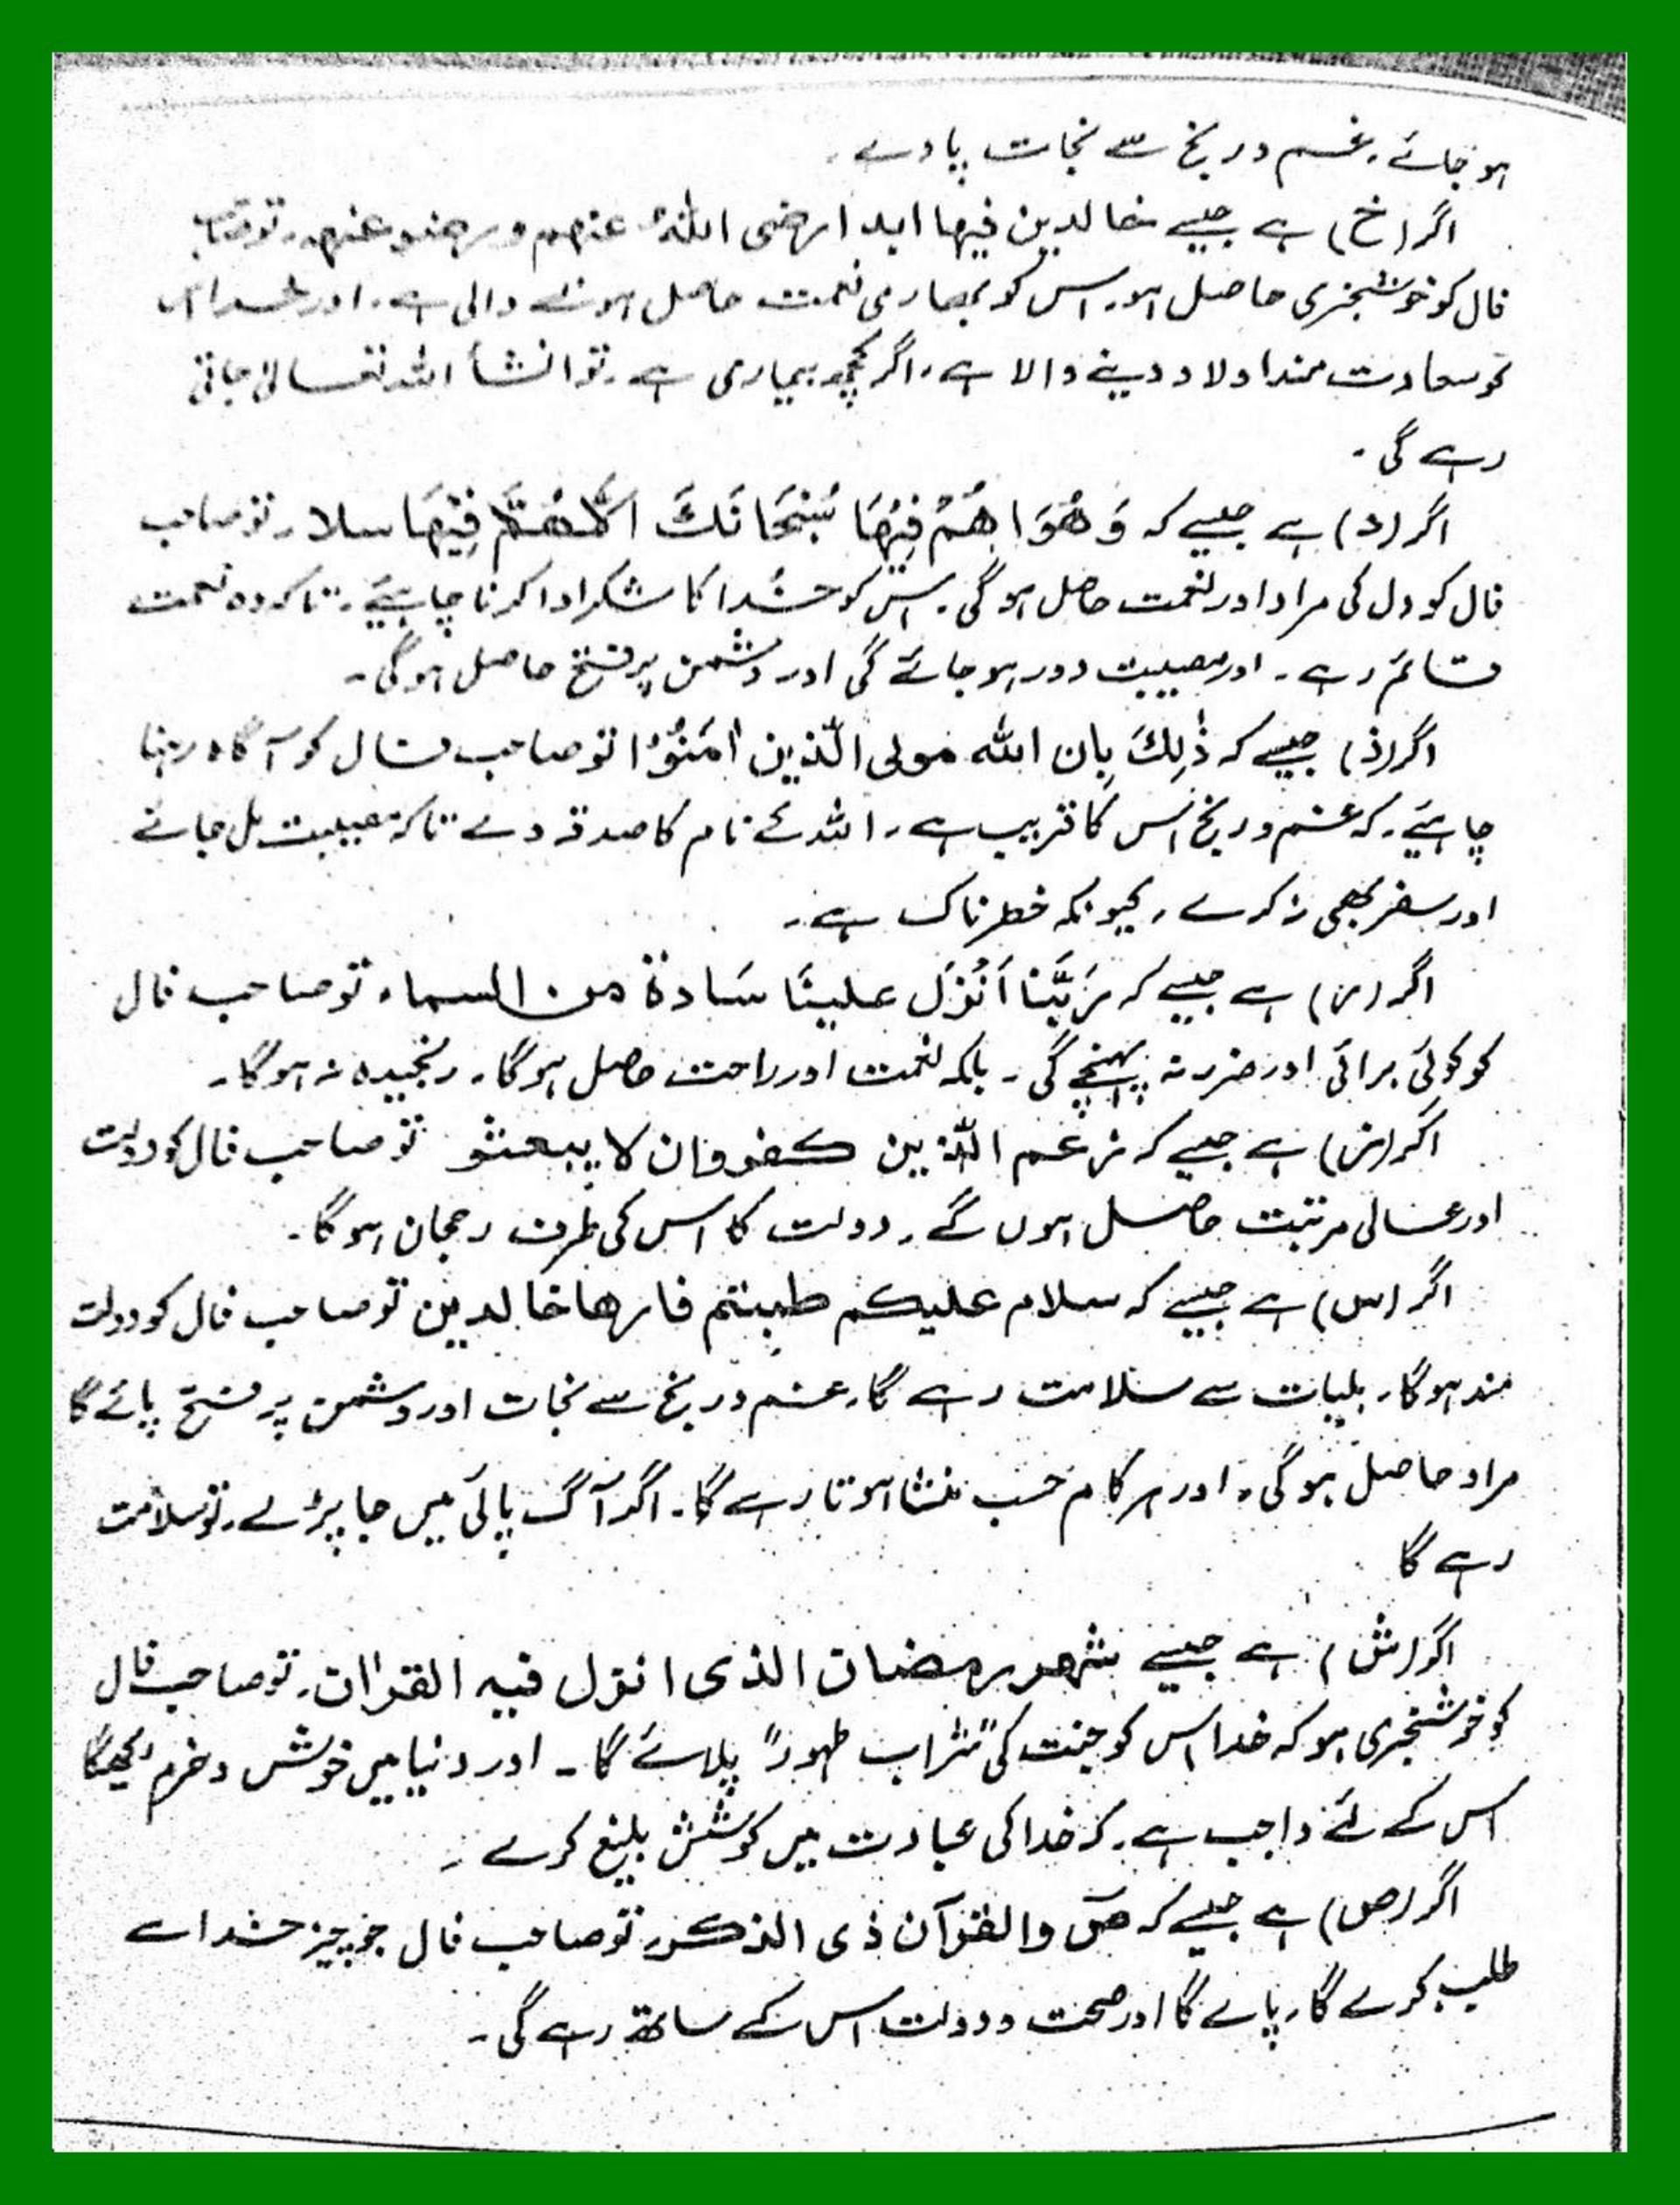 ہو جائے۔ غم و رنج سے نجات پاوے۔
اگر (خ) ہے جیسے خالدین فیھا ابدا رضی اللہُ عنھم ورضو عنھ۔ تو
فال کو خوشخبری حاصل ہو۔ اس کو بھاری نعمت حاصل ہونے والی ہے۔ اور خدا اس
کو سعادت مند اولاد دینے والا ہے۔ اگر کچھ بیماری ہے۔ تو انشأ اللہ تعالیٰ جاتی
رہے گی۔
اگر (د) ہے جیسے کہ وَھُوَا ھُمْ فِیْھَا سُبْحَانَکَ فِیْھَا سلا۔ تو صاحب
فال کو دل کی مراد اور نعمت حاصل ہو گی۔ اس کو خُدا کا شکر ادا کرنا چاہیئے۔ تاکہ وہ نعمت
قائم رہے۔ اور مصیبت دور ہو جائے گی اور دشمن پر فتح حاصل ہو گی۔
اگر (ذ) جیسے کہ ذٰلِکَ بِان اللہ مولی الّذین اٰمَنُوْا تو صاحب فال کو آگاہ رہنا
چاہیئے۔ کہ غم و رنج اس کا قریب ہے۔ اللہ کے نام کا صدقہ دے تاکہ مصیبت ٹل جائے
اور سفر بھی نہ کرے۔ کیونکہ خطرناک ہے۔
اگر (ر) ہے جیسے کہ رَبَّنَا اَنْزَلَ علینَا سَادۃ من السماء تو صاحب فال
کو کوئی برائی اور ضرر نہ پہنچے گی۔ بلکہ نعمت اور راحت حاصل ہو گا۔ رنجیدہ نہ ہو گا۔
اگر (ز) ہے جیسے کہ زعم الّذین کفروان لا یبعثو تو صاحب فال کو دولت
اور عالی مرتبت حاصل ہوں گے۔ دولت کا اس کی طرف رحجان ہو گا۔
اگر (س) ہے جیسے کہ سلام علیکم طبتم فارھا خالدین تو صاحب فال کو دولت
مند ہو گا۔ بلیات سے سلامت رہے گا۔ غم و رنج سے نجات اور دشمن پر فتح پائے گا
مراد حاصل ہو گی۔ اور ہر کام حسب منشا ہوتا رہے گا۔ اگر آگ پانی میں جا پڑے۔ تو سلامت
رہے گا
اگر (ش) ہے جیسے شھر رمضان الذی انزل فیہ القراٰن۔ تو صاحب فال
کو خوشخبری ہو کہ خدا اس کو جنت کی "شراب طہور" پلائے گا۔ اور دنیا میں خوش و خرم رکھیگا
اس کے لئے واجب ہے۔ کہ خدا کی عبادت میں کوشش بلیغ کرے۔
اگر (ص) ہے جیسے کہ صٓ والقرآن ذی الذکر۔ تو صاحب فال جو چیز خدا سے
طلب کرے گا۔ پاے گا اور صحت و دولت اس کے ساتھ رہے گی۔